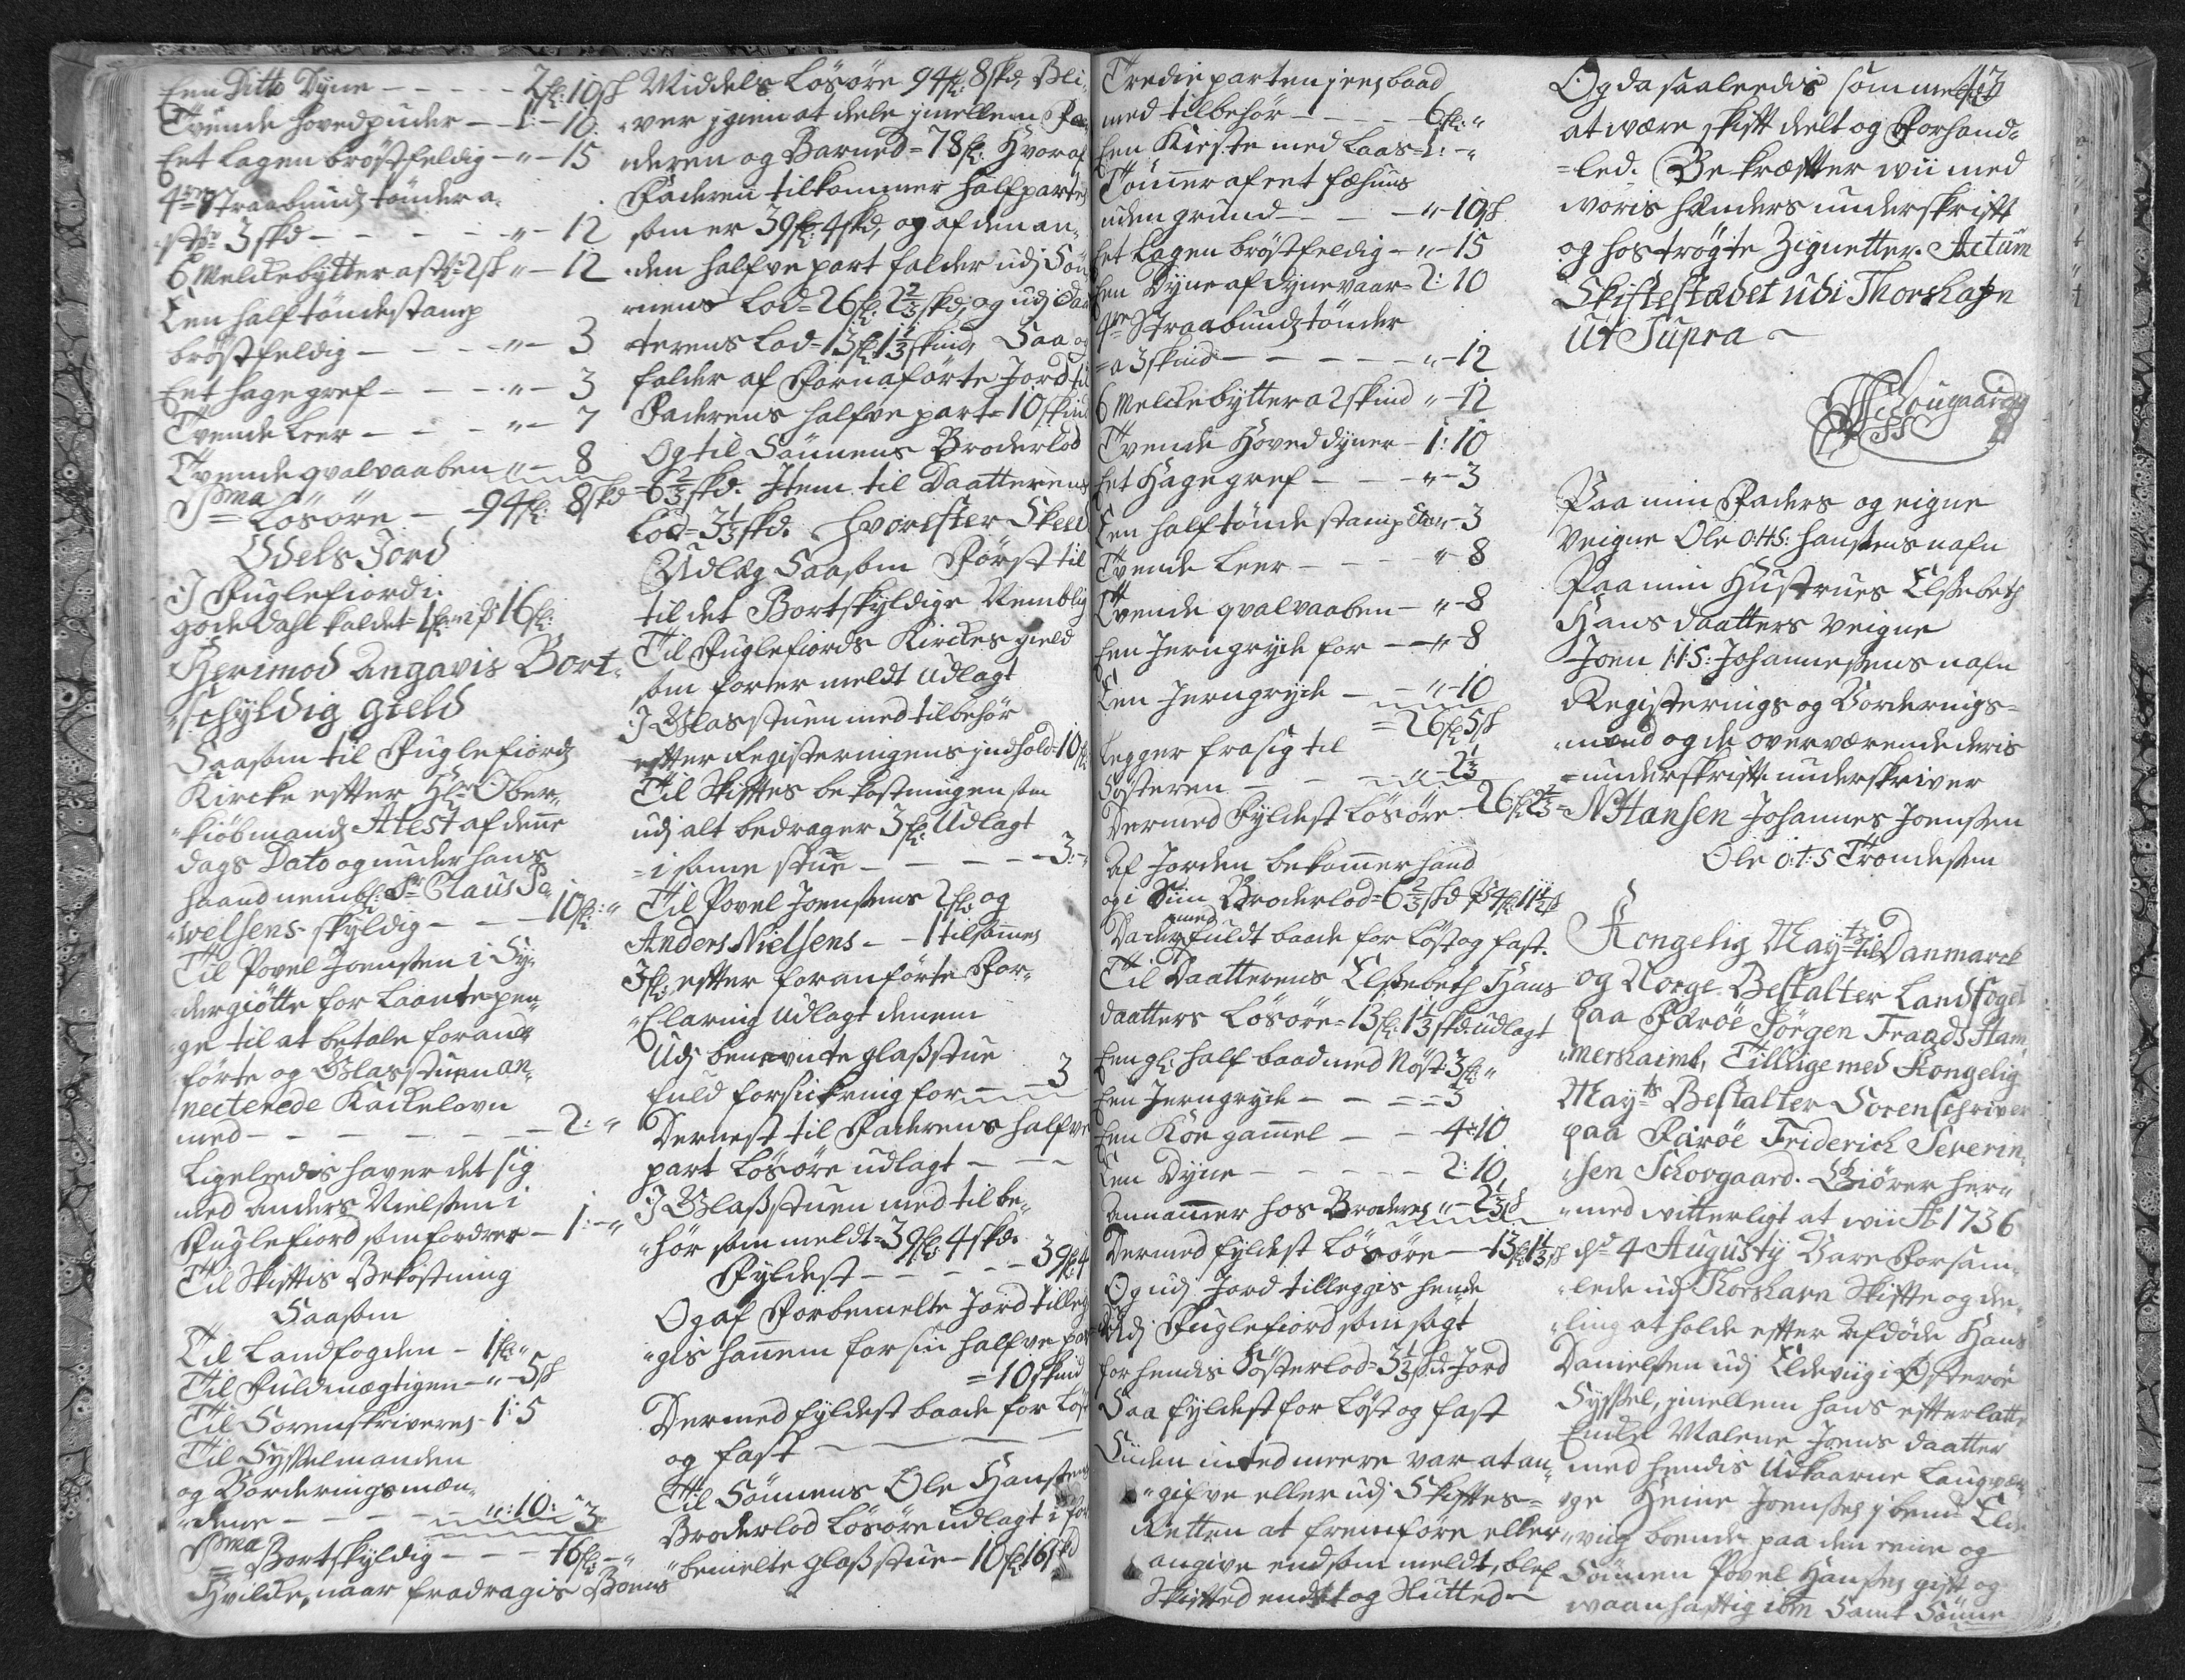 Een Ditto Dyne - - - - - 2fl: 10sk
Tvende hovedpuder - 1: - 10.
Eet Lagen bröstfeldig - " - 15
4re Straabundz tönder a.
st: 3 skd - - - - - " - 12
6 Melckebytter a st: 2sk " - 12
Een half töndestamp
bröstfeldig - - - - " - 3
Eet hage gref - - - " - 3
Tvende Leer - - - " - 7
Tvende qvalvaaben " - 8
Sma Lösöre - 94fl: 8skd
Odels Jord
I Fuglefiord i.
gode Dahl kaldet = 1 16fl:
Herimod Angavis Bort-
"schyldig gield
Saasom til Fuglefiordz
Kircke efter Hr Ober-
"kiöbmandz Atest af denne
Dags Dato og under hans
haand nembl: Sr Claus Po-
"welsens skyldig - - - 10fl: "
Til Povel Joensen i Sy-
"dergiötte for Laante pen-
"ge til at betale foran
förte og Glasstuen an-
necterede Kackelovn
med - - - - - - 2: "
Ligeleedis haver det sig
med Anders Nielsen i
Fuglefiord som fordrer - 1: - "
Til Skiftis Bekostning
Saasom
Til Landfogden - 1fl: "
Til Fuldmægtigen - " - 5sk
Til Sorenskriveren - 1: 5
Til Sysselmanden
og Vorderingsmæn-
"dene - - - - " : 10: 3
Sma Bortskyldig - - - 16fl: - "
Hvilcke, naar fradragis Boens
Middels Lösöre 94fl: 8skd Bli-
"ver igien at dele imellem Fa-
deren og Barned = 78fl: Hvoraf
Faderen tilkommer halfparten
som er 39fl: 4skd, og af den an-
"den halfve part falder udj Sön-
nens Lod = 26fl: 2 2/3 skd, og udj Daa-
terens Lod = 13fl: 1 1/3 skind, Saa og
falder af Foranförte Jord til
Faderens halfve part = 10 skind
Og til Sönnens Broderlod
= 6 2/3 skd. Item til Daatterens
Lod = 3 1/3 skd. Hvorefter Skeed
Udlæg Saasom Först til
til det Bortskyldige Nemblig
Til Fuglefiords Kirckes gield
som forermeldt Udlagt
I Glasstuen med tilbehör
efter Registeringens indhold = 10fl:
Til Skiftes bekostningen som
udj alt bedrager 3fl: Udlagt
= i samme stue - - - - - 3: - "
Til Povel Joensens 2fl: og
Anders Nielsens - - 1 tilsammen
3fl: efter foranförte For-
"Claring Udlagt dennem
Udj benevnte glasstue
fuld forsickring for - - - 3
Dernest til Faderens halfve
part Lösöre udlagt - - -
I Glasstuen med tilbe-
"hör som meldt = 39fl: 4skd.
Fyldest - - - - - 39fl: 4
Og af Forbemelte Jord tilleg-
"gis hannem for sin halfve part
= 10 skind
Dermed fyldest baade for Löst
og fast - - - - -
Til Sönnens Ole Hansens
Broderlod Lösöre udlagt i for
"bemelte glasstue - 10fl: 16skd
Tredieparten i een baad
med tilbehör - - - - 6fl: "
Een Kiste med Laas = 1: - "
Tömmer af eet fæhuus
uden grund - - - " - 10sk
Eet Lagen bröstfeldig - " - 15
Een Dyne af dynevaar = 2: 10
4re Straabundz tönder
= a 3 skind - - - - - " - 12
6 Melckebytter a 2 skind " - 12
Tvende Hoveddyner - 1: 10
Eet Hagegref - - - " - 3
Een half tönde stamp " - 3
Tvende Leer - - - " 8
Tvende qvalvaaben - " - 8
Een Jerngryde for - - " 8
Een Jerngryde - - " - 10
= 26fl: 5sk
Legger frasig til
Sösteren - - - " - 2 1/3
Dermed Fyldest Lösöre - 26fl: 2 2/3
Af Jorden bekommer hand
og i Sin Broderlod = 6 2/3 skd
med fuldt baade for Löst og fast.
Til Daatterens Elsebeth Hans
daatters Lösöre = 13fl: 1 1/3 skd udlagt
Een gl: half baad med Nöst: 3fl: "
Een Jerngryde - - = = 3
Een Koe gammel - - 4: 10
Een Dyne - - - - - 2: 10
Annammer hos Broderen " - 2 1/3 sk
Dermed fyldest Lösöre - 13fl: 1 1/3 sk
Og udj Jord tilleggis hende
Udj Fuglefiord som sagt
for hendis Sösterlod = 3 1/3 skd Jord
Saa fyldest for Löst og fast
Siiden inted meere var at an-
"gifve eller udj Skiftes =
Retten at fremföre eller
angive end som meldt, blef
Skifted endt og Slutted -
Og da saaleedis som meldt 43
at være skift deelt og Forhand-
=led. Bekræfter wii med
woris hænders underskrift
og hoströgte Zignetter. Actum
Skiftestædet ubi Thorshafn
Ut Supra -
Schougaard
Paa min Faders og eigne
Veigne Ole O:H:S: Hansens nafn
Paa min Hustrues Elsebeth
Hans daatters Veigne
Joen I:I:S: Johannesens nafn
Registerings og Vorderings =
"mænd og de overværende deris
= underskrift underskriver
N Hansen Johannes Joensen
Ole O:T:S Trondesen
Kongelig Mayts til Danmarck
og Norge Bestalter Landfoget
paa Færöe Jörgen Fraads Ham-
"mershaimb, Tillige med Kongelig
Mayts Bestalter Sorenschriver
paa Færöe Friderich Severin-
"sen Schovgaard. Giörer her-
"med vitterligt at wii Ao 1736
d: 4 Augusty Vare Forsam-
"lede udj Thorshavn Skifte og dee-
"ling at holde efter Afdöde Hans
Danielsen udj Eldeviig i Österöe
Syssel, imellem hans efterlatte
Encke Malene Joens daatter
med hendis Udkaarne Laugvær-
"ge Heine Joensen ibend Elde-
"viig boende paa den eene og
Sönnen Povel Hansen gift og
waanhaftig ibm Samt Sönne